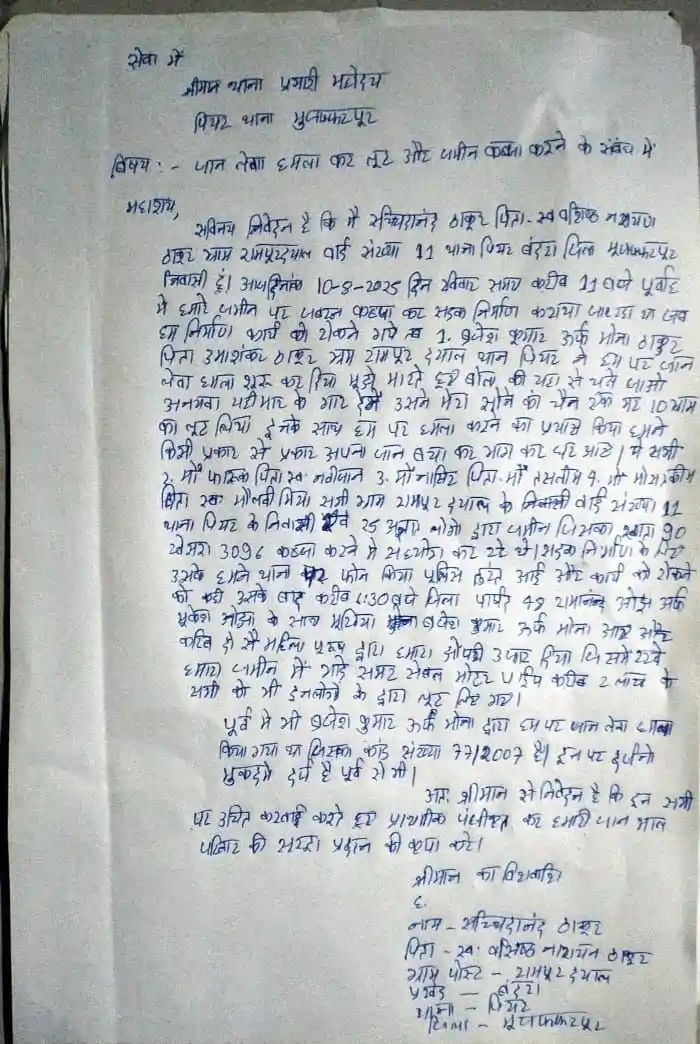 सेवा में
श्रीमान थाना प्रभारी महोदय
पियर थाना मुजफ्फरपुर
विषय :- जान लेवा हमला कर लूट और जमीन कब्जा करने के संबंध में
महाशय,
सविनय निवेदन है कि मै सच्चिदानंद ठाकुर पिता- स्व वशिष्ठ नारायण
ठाकुर ग्राम रामपुरदयाल वार्ड संख्या 11 थाना पियर बंदरा जिला मुजफ्फरपुर
निवासी हूं। आज दिनांक 10-8-2025 दिन रविवार समय करीब 11 बजे पूर्वाह
मे हमारे जमीन पर जबरन कब्जा कर सडक निर्माण कराया जा रहा था जब
हम निर्माण कार्य को रोकने गये तब 1. ब्रजेश कुमार उर्फ मोना ठाकुर
पिता उमाशंकर ठाकुर ग्राम रामपुर दयाल थाना पियर ने हम पर जान
लेवा हमला शुरू कर दिया मुझे मारते हुए बोला की यहा से चले जाओ
अन्यथा यही मार के गार देगे उसने मेरा सोने का चैन 10 ग्राम
का लूट लिया इनके साथ हम पर हमला करने का प्रयास किया हमने
किसी प्रकार से प्रकार अपना जान बचा कर भाग कर घर आये। ये सभी
2. मो पिता स्व नबीजान 3. मो नासिर पिता- मो तसलीम 4. मो
पिता स्व मौलवी मिया सभी ग्राम रामपुर दयाल के निवासी वार्ड संख्या 11
थाना पियर के निवासी एवं 25 अज्ञात लोगो द्वारा जमीन जिसका खाता 90
खेसरा 3096 कब्जा करने मे सहयोग कर रहे थे। सडक निर्माण के लिए
उसके हमने थाना पर फोन किया पुलिस तुरंत आई और कार्य को रोकने
को कही उसके बाद करीब 4:30 बजे जिला पार्षद 42 रामानंद ओझा उर्फ
मुकेश ओझा के साथ मुखिया ब्रजेश कुमार उर्फ मोना आए और
करीब दो सै महिला पुरुष द्वारा हमारा झोपडी उजार दिया जिसमे रखे
हमारा जमीन में गाडे समर सेबल मोटर पाईप करीब 2 लाख के
सभी को भी इनलोगो के द्वारा लूट लिए गए।
पूर्व मे भी ब्रजेश कुमार उर्फ मोना द्वारा हम पर जान लेवा हमला
किया गया था जिसका कांड संख्या 77/2007 है। इन पर दर्जनो
मुकदमे दर्ज है पूर्व से भी।
अतः श्रीमान से निवेदन है कि इन सभी
पर उचित करवाई करते हुए प्राथमिक पंजीकृत कर हमारी जान माल
परिवार की सुरक्षा प्रदान की कृपा करे।
श्रीमान का विश्वासी
ह.
नाम - सच्चिदानंद ठाकुर
पिता - स्व. वसिष्ठ नारायन ठाकुर
ग्राम पोस्ट - रामपुर दयाल
प्रखंड - बंदरा
थाना - पियर
जिला - मुजफ्फरपुर